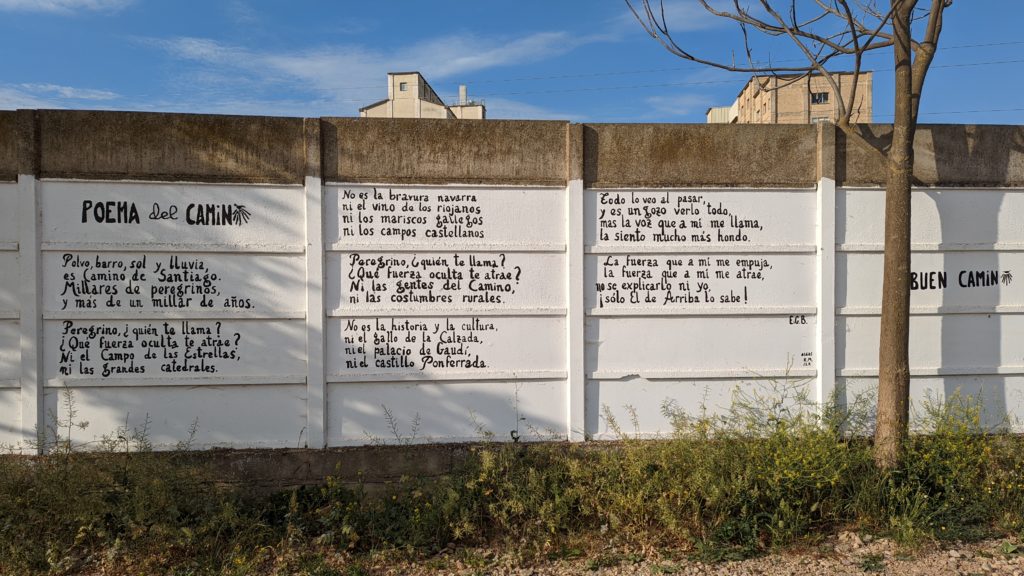 POEMA del CAMINO
Polvo, barro, sol y lluvia,
es Camino de Santiago.
Millares de peregrinos,
y más de un millar de años.
Peregrino, ¿quién te llama?
¿Qué fuerza oculta te atrae?
Ni el Campo de las Estrellas,
ni las grandes catedrales.
No es la bravura navarra
ni el vino de los riojanos
ni los mariscos gallegos
ni los campos castellanos
Peregrino, ¿quién te llama?
¿Qué fuerza oculta te atrae?
Ni las gentes del Camino,
ni las costumbres rurales.
No es la historia y la cultura,
ni el gallo de la Calzada,
ni el palacio de Gaudí,
ni el castillo Ponferrada.
Todo lo veo al pasar,
y es un gozo verlo todo,
mas la voz que a mí me llama,
la siento mucho más hondo.
La fuerza que a mí me empuja,
la fuerza que a mí me atrae,
no se explicarlo ni yo
¡sólo El de Arriba lo sabe!
E.G.B.
BUEN CAMINO